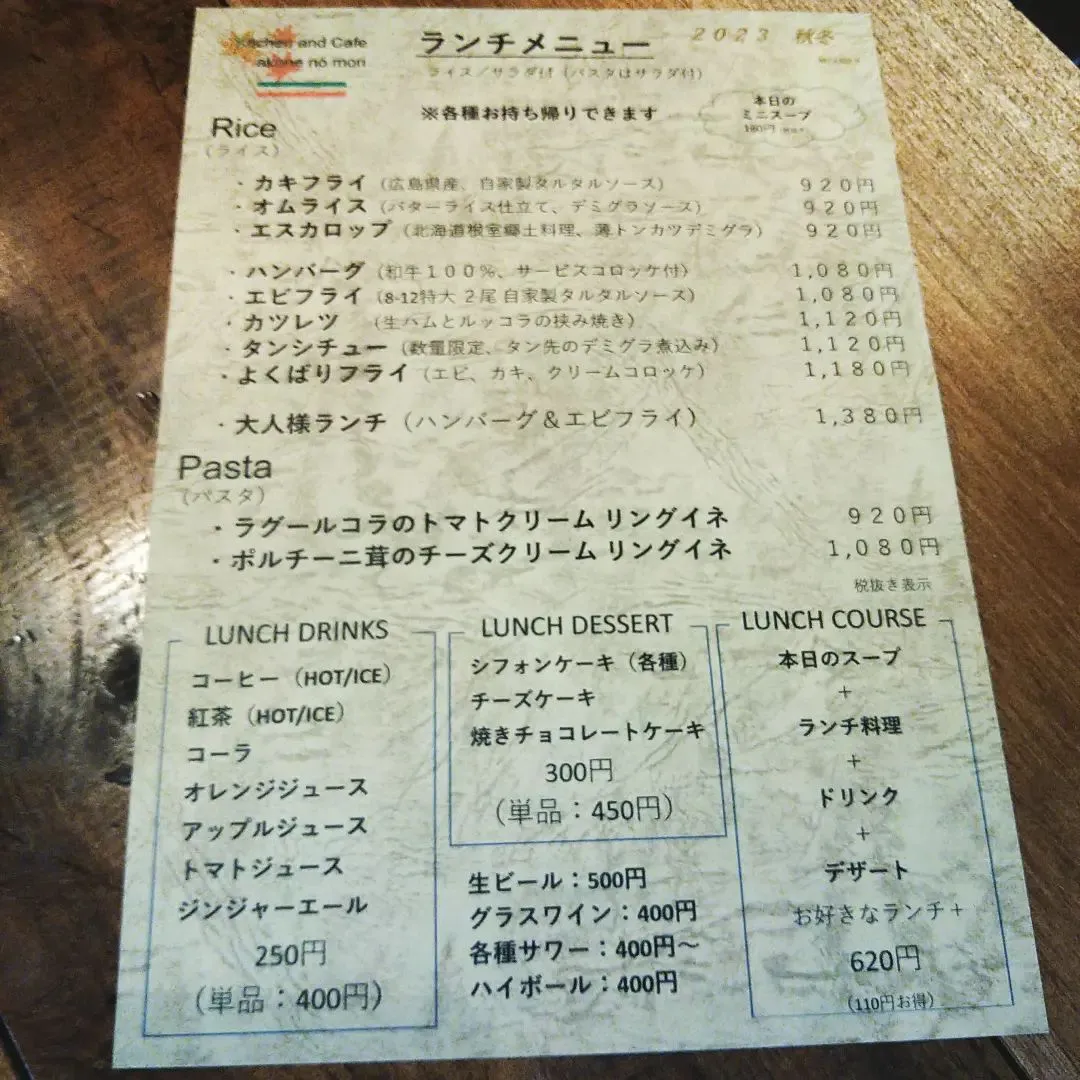 Kitchen and Cafe
akane no mori
ランチメニュー
2023 秋冬
ライス／サラダ付（パスタはサラダ付）
※各種お持ち帰りできます
本日の
ミニスープ
180円
Rice
（ライス）
・カキフライ（広島県産、自家製タルタルソース） 920円
・オムライス（バターライス仕立て、デミグラソース） 920円
・エスカロップ（北海道根室郷土料理、薄トンカツデミグラ） 920円
・ハンバーグ（和牛１００％、サービスコロッケ付） 1,080円
・エビフライ（8-12特大 ２尾 自家製タルタルソース） 1,080円
・カツレツ （生ハムとルッコラの挟み焼き） 1,120円
・タンシチュー（数量限定、タン先のデミグラ煮込み） 1,120円
・よくばりフライ（エビ、カキ、クリームコロッケ） 1,180円
・大人様ランチ（ハンバーグ＆エビフライ） 1,380円
Pasta
（パスタ）
・ラグールコラのトマトクリーム リングイネ 920円
・ポルチーニ茸のチーズクリーム リングイネ 1,080円
税抜き表示
LUNCH DRINKS
コーヒー（HOT/ICE）
紅茶（HOT/ICE）
コーラ
オレンジジュース
アップルジュース
トマトジュース
ジンジャーエール
250円
（単品：400円）
LUNCH DESSERT
シフォンケーキ（各種）
チーズケーキ
焼きチョコレートケーキ
300円
（単品：450円）
生ビール：500円
グラスワイン：400円
各種サワー：400円～
ハイボール：400円
LUNCH COURSE
本日のスープ
+
ランチ料理
+
ドリンク
+
デザート
お好きなランチ＋
620円
（110円お得）